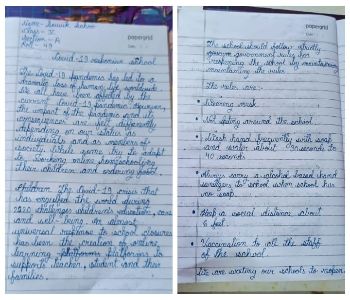 Name- Souvik Sahoo
Class - V
Section - A
Roll - 49
Covid-19 responsive school
The Covid-19 pandemic has led to a
dramatic loss of human life worldwide
We all have been affected by the
current Covid-19 pandemic. However,
the impact of the pandemic and its
consequences are felt differently
depending on our status as
individuals and as members of
society. While some try to adapt
to working online, homeschooling
their children and ordering food
children the covid-19 crisis that
has engulfed the world during
2020 challenges children's education, care
and well-being. An almost
universal response to school closures
has been the creation of online
learning platforms platforms to
support teacher, student and their
families.
paperGrid
The school should follow strictly
government rules for
reopening the school by maintaining
maintaining the rules.
The rules are:-
Wearing mask.
Not spitting around the school.
Wash hands frequently with soap
and water about 30 seconds to
40 seconds
Always carry a alcohol based hand
sanitizer to school when school has
no soap.
Keep a social distance about
6 feet.
Vaccination to all the staff
of the school
We are waiting our schools to reopen.
paperGrid